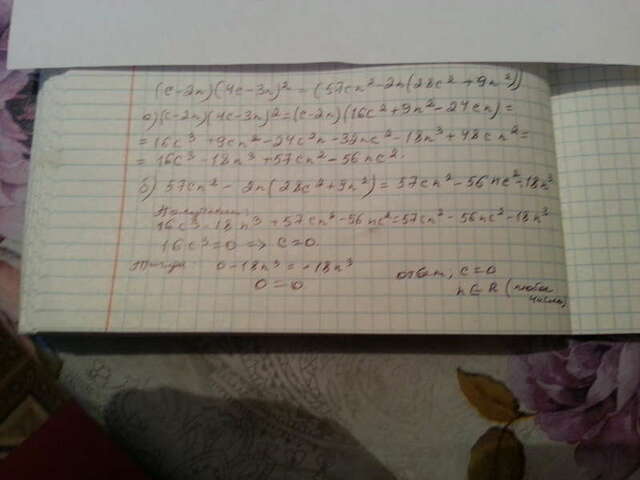 (c-2n)(4c-3n)² = (57cn²-2n(28c²+9n²))
а) (c-2n)(4c-3n)² = (c-2n)(16c²+9n²-24cn) =
= 16c³ + 9cn² - 24c²n - 32nc² - 18n³ + 48cn² =
= 16c³ - 18n³ + 57cn² - 56nc².
б) 57cn² - 2n(28c²+9n²) = 57cn² - 56nc² - 18n³
Получаем:
16c³ - 18n³ + 57cn² - 56nc² = 57cn² - 56nc² - 18n³
16c³ = 0 => c = 0.
Тогда 0 - 18n³ = -18n³
0 = 0.
ответ: c = 0
n ∈ R (любое
число)